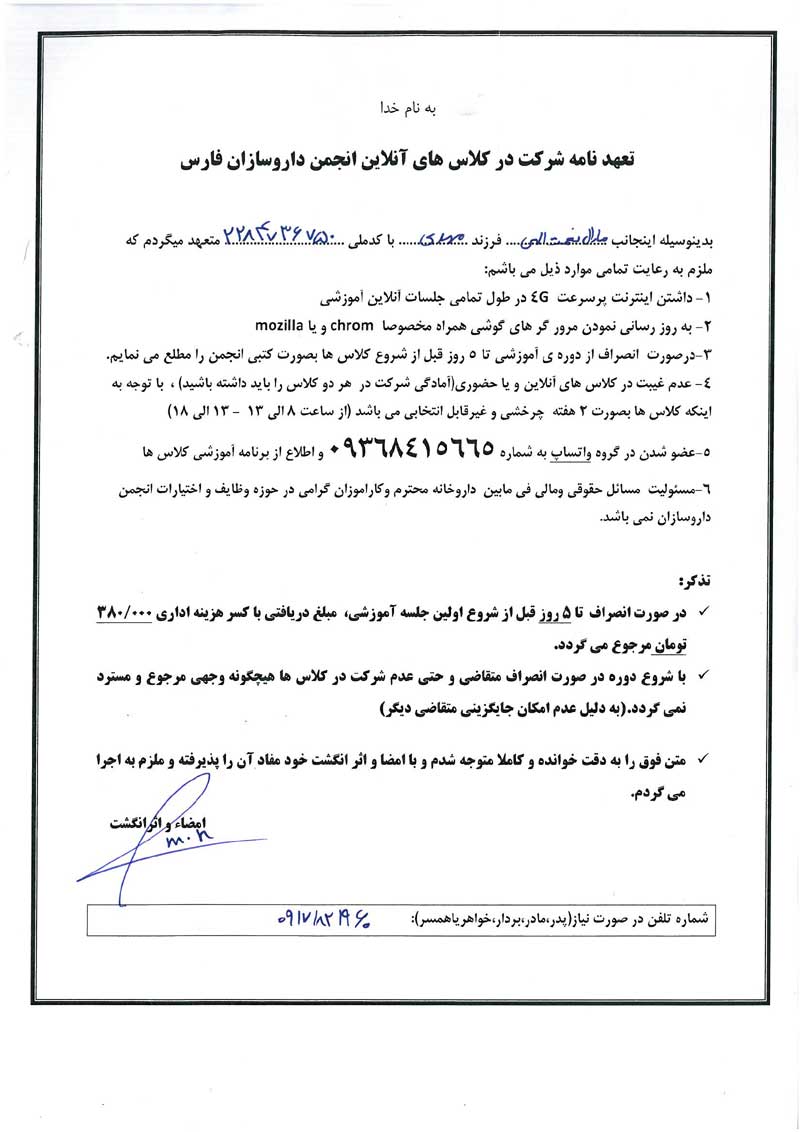 به نام خدا
تعهد نامه شرکت در کلاس های آنلاین انجمن داروسازان فارس
بدینوسیله اینجانب .... فرزند ...مهدی..... با کدملی .... متعهد میگردم که
ملزم به رعایت تمامی موارد ذیل می باشم:
۱- داشتن اینترنت پرسرعت 4G در طول تمامی جلسات آنلاین آموزشی
۲- به روز رسانی نمودن مرور گر های گوشی همراه مخصوصا chrom و یا mozilla
۳-درصورت انصراف از دوره ی آموزشی تا ۵ روز قبل از شروع کلاس ها بصورت کتبی انجمن را مطلع می نمایم.
۴- عدم غیبت در کلاس های آنلاین و یا حضوری(آمادگی شرکت در هر دو کلاس را باید داشته باشید) ، با توجه به
اینکه کلاس ها بصورت ۲ هفته چرخشی و غیرقابل انتخابی می باشد (از ساعت ۸ الی ۱۳ - ۱۳ الی ۱۸)
۵-عضو شدن در گروه واتساپ به شماره ۰۹۳۶۸۴۱۵۶۶۵ و اطلاع از برنامه آموزشی کلاس ها
۶-مسئولیت مسائل حقوقی ومالی فی مابین داروخانه محترم وکاراموزان گرامی در حوزه وظایف و اختیارات انجمن
داروسازان نمی باشد.
تذکر:
✓ در صورت انصراف تا ۵ روز قبل از شروع اولین جلسه آموزشی، مبلغ دریافتی با کسر هزینه اداری ۳۸۰/۰۰۰
تومان مرجوع می گردد.
✓ با شروع دوره در صورت انصراف متقاضی و حتی عدم شرکت در کلاس ها هیچگونه وجهی مرجوع و مسترد
نمی گردد.(به دلیل عدم امکان جایگزینی متقاضی دیگر)
✓ متن فوق را به دقت خوانده و کاملا متوجه شدم و با امضا و اثر انگشت خود مفاد آن را پذیرفته و ملزم به اجرا
می گردم.
امضاء و اثرانگشت
m.n
شماره تلفن در صورت نیاز(پدر،مادر،بردار،خواهریاهمسر):